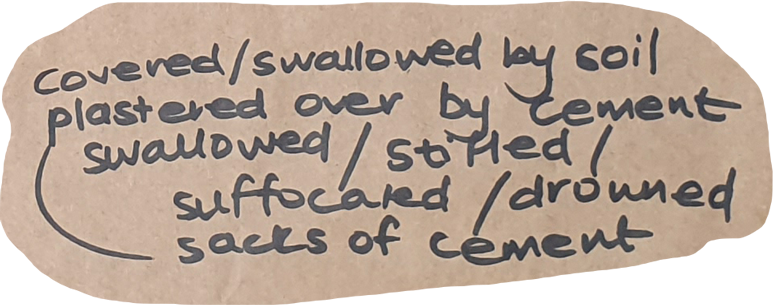 covered/swallowed by soil
plastered over by cement
swallowed/stifled/
suffocated/drowned
sacks of cement